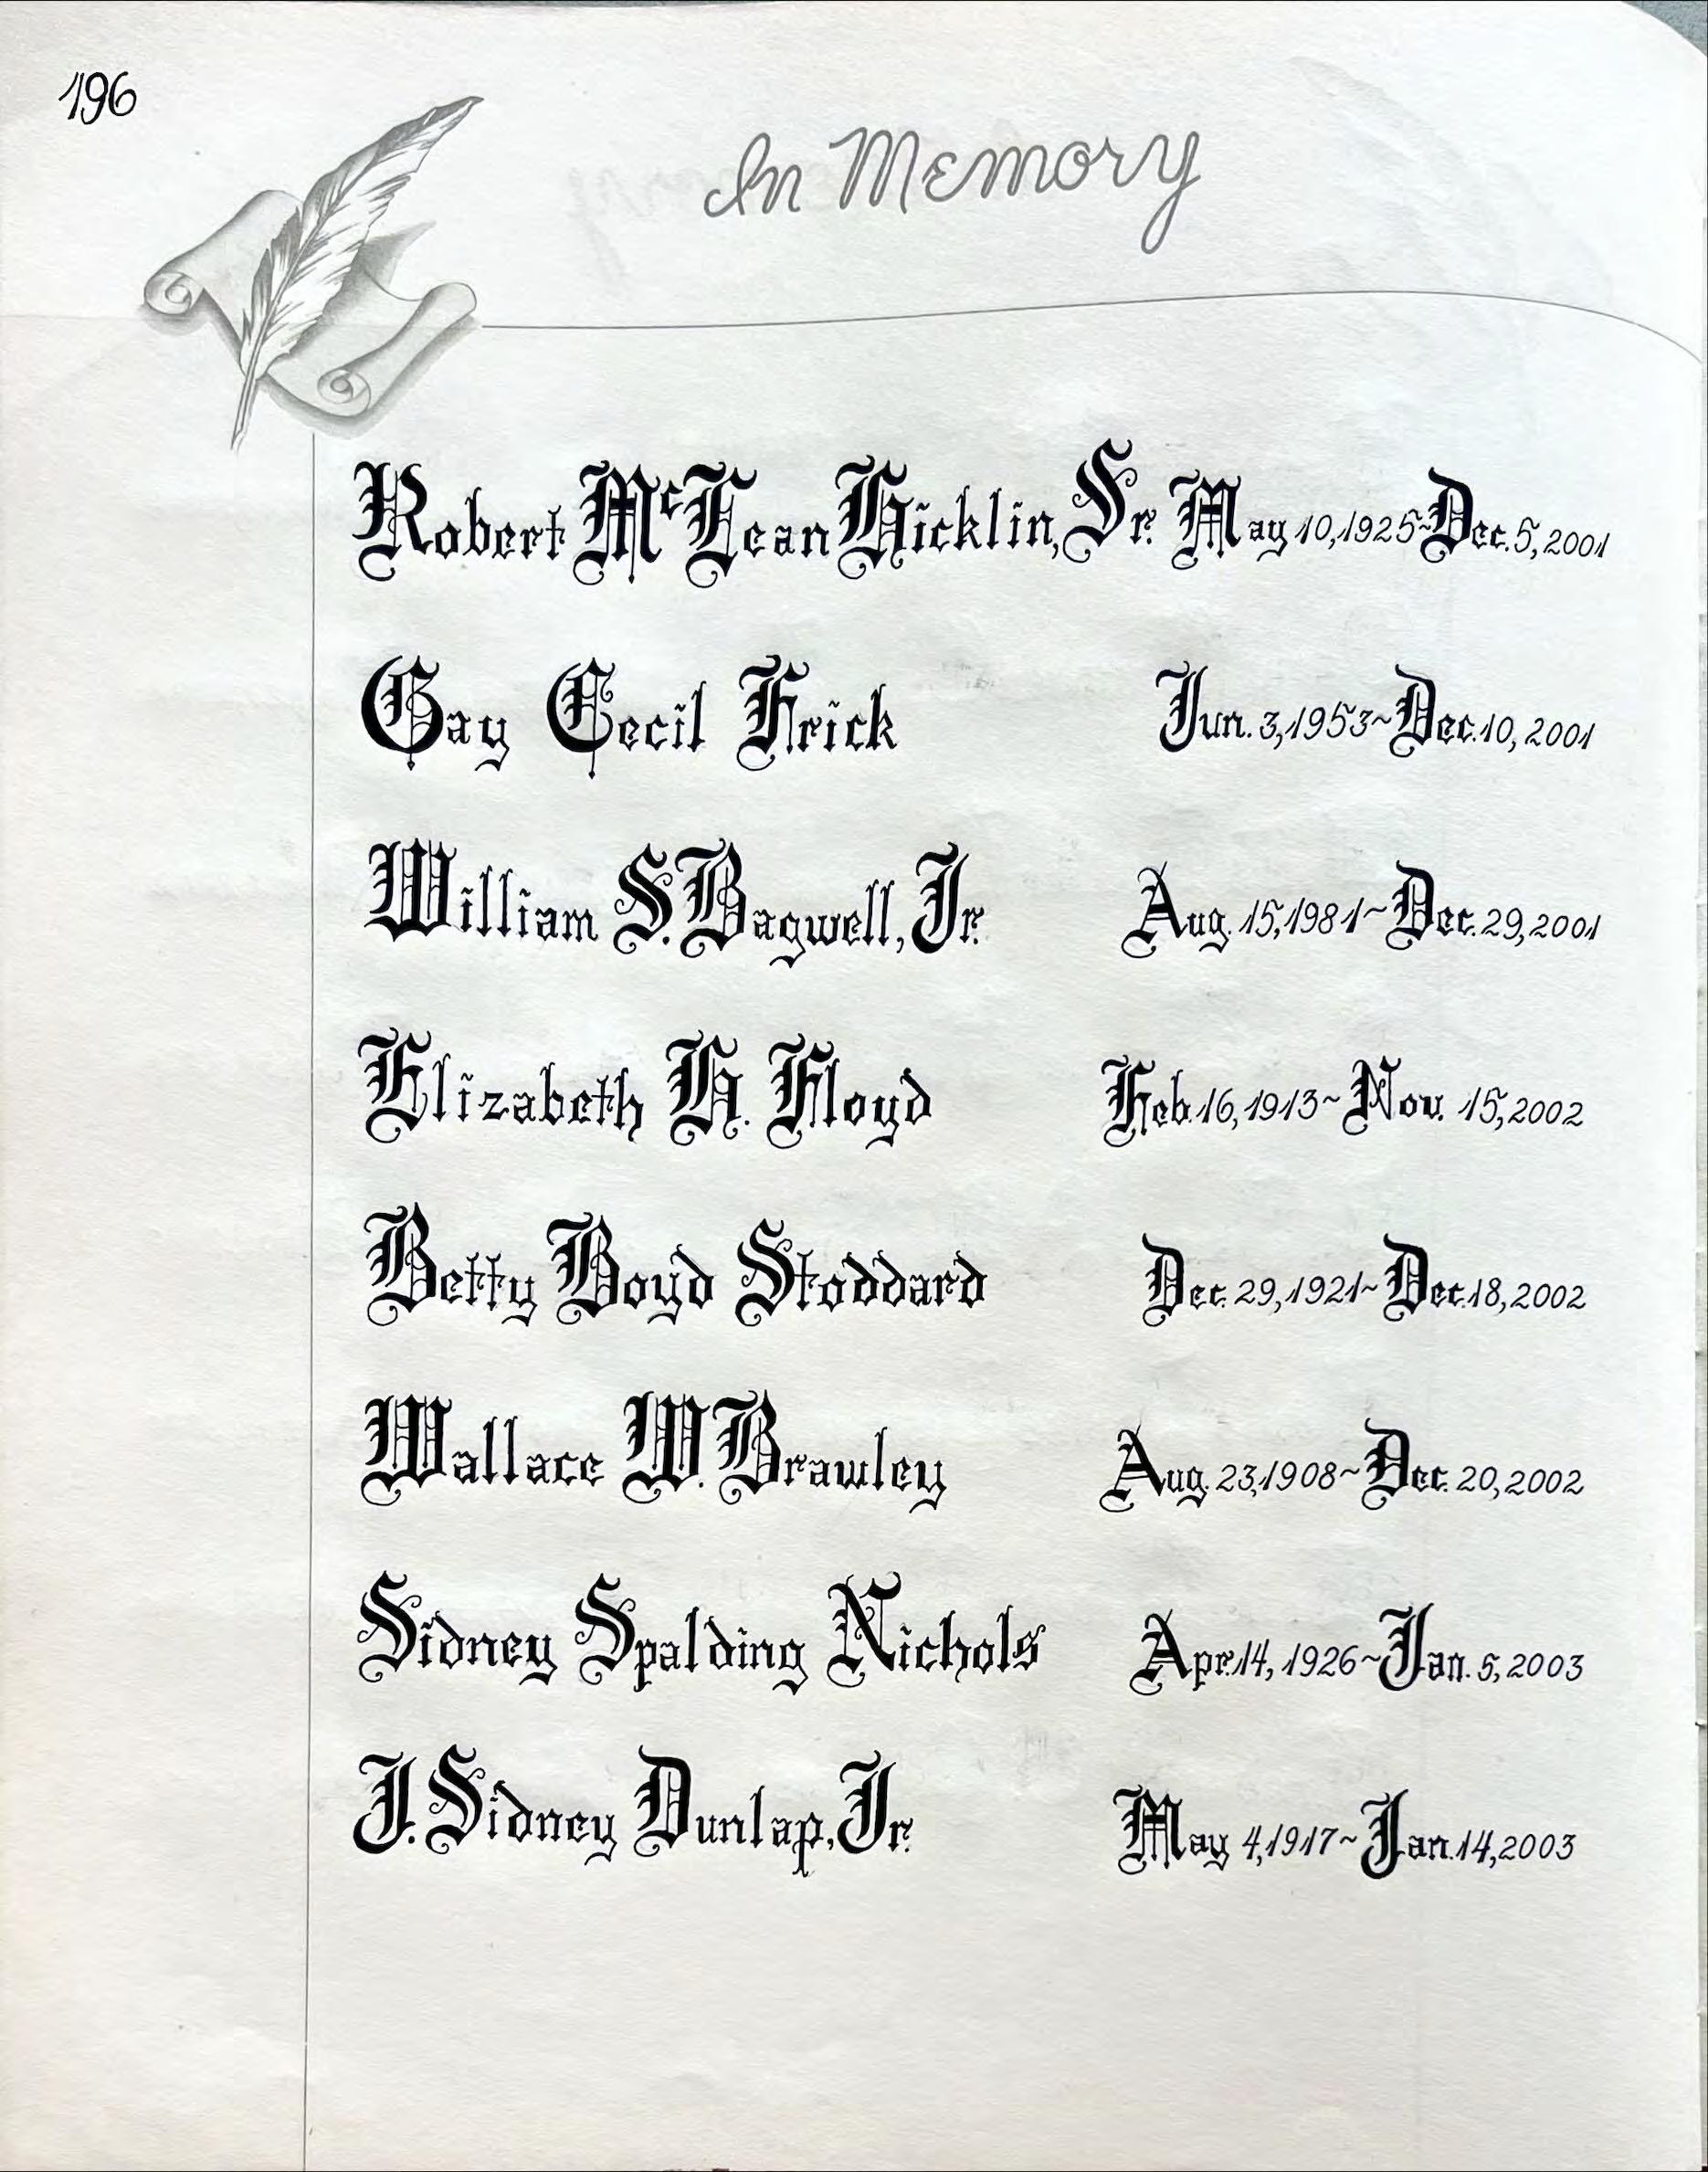 196
In Memory
Robert McLean Hicklin, Sr. May 10, 1925~Dec. 5, 2001
Gay Cecil Frick Jun. 3, 1953~Dec. 10, 2001
William S. Bagwell, Jr. Aug. 15, 1981~Dec. 29, 2001
Elizabeth H. Floyd Feb. 16, 1913~Nov. 15, 2002
Betty Boyd Stoddard Dec. 29, 1921~Dec. 18, 2002
Wallace W. Brawley Aug. 23, 1908~Dec. 20, 2002
Sidney Spalding Nichols Apr. 14, 1926~Jan. 5, 2003
J. Sidney Dunlap, Jr. May 4, 1917~Jan. 14, 2003